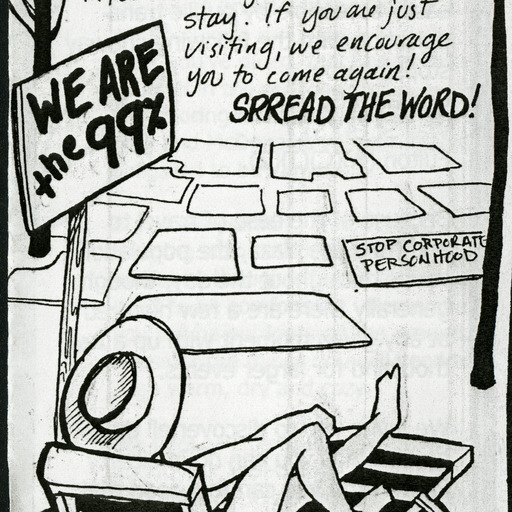 stay. If you are just
visiting, we encourage
you to come again!
SPREAD THE WORD!
WE ARE
the 99%
STOP CORPORATE
PERSONHOOD